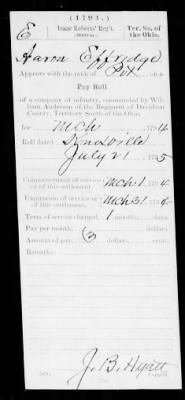 (1794.)
E Isaac Roberts' Reg't, Ter. So. of the Ohio.
Aaron Effridge
Appears with the rank of Pvt
Pay Roll
of a company of infantry, commanded by William Anderson of the Regiment of Davidson County, Territory South of the Ohio,
for Mch, 1794
Roll dated Knoxville
July 21, 1795
Commencement of service or of this settlement, Mch 1, 1794
Expiration of service or of this settlement, Mch 31, 1794
Term of service charged, 1 months, days.
Pay per month, (3 dollars, cents.
Amount of pay, dollars, cents.
Remarks:
J. B. Hyatt
Copyist.